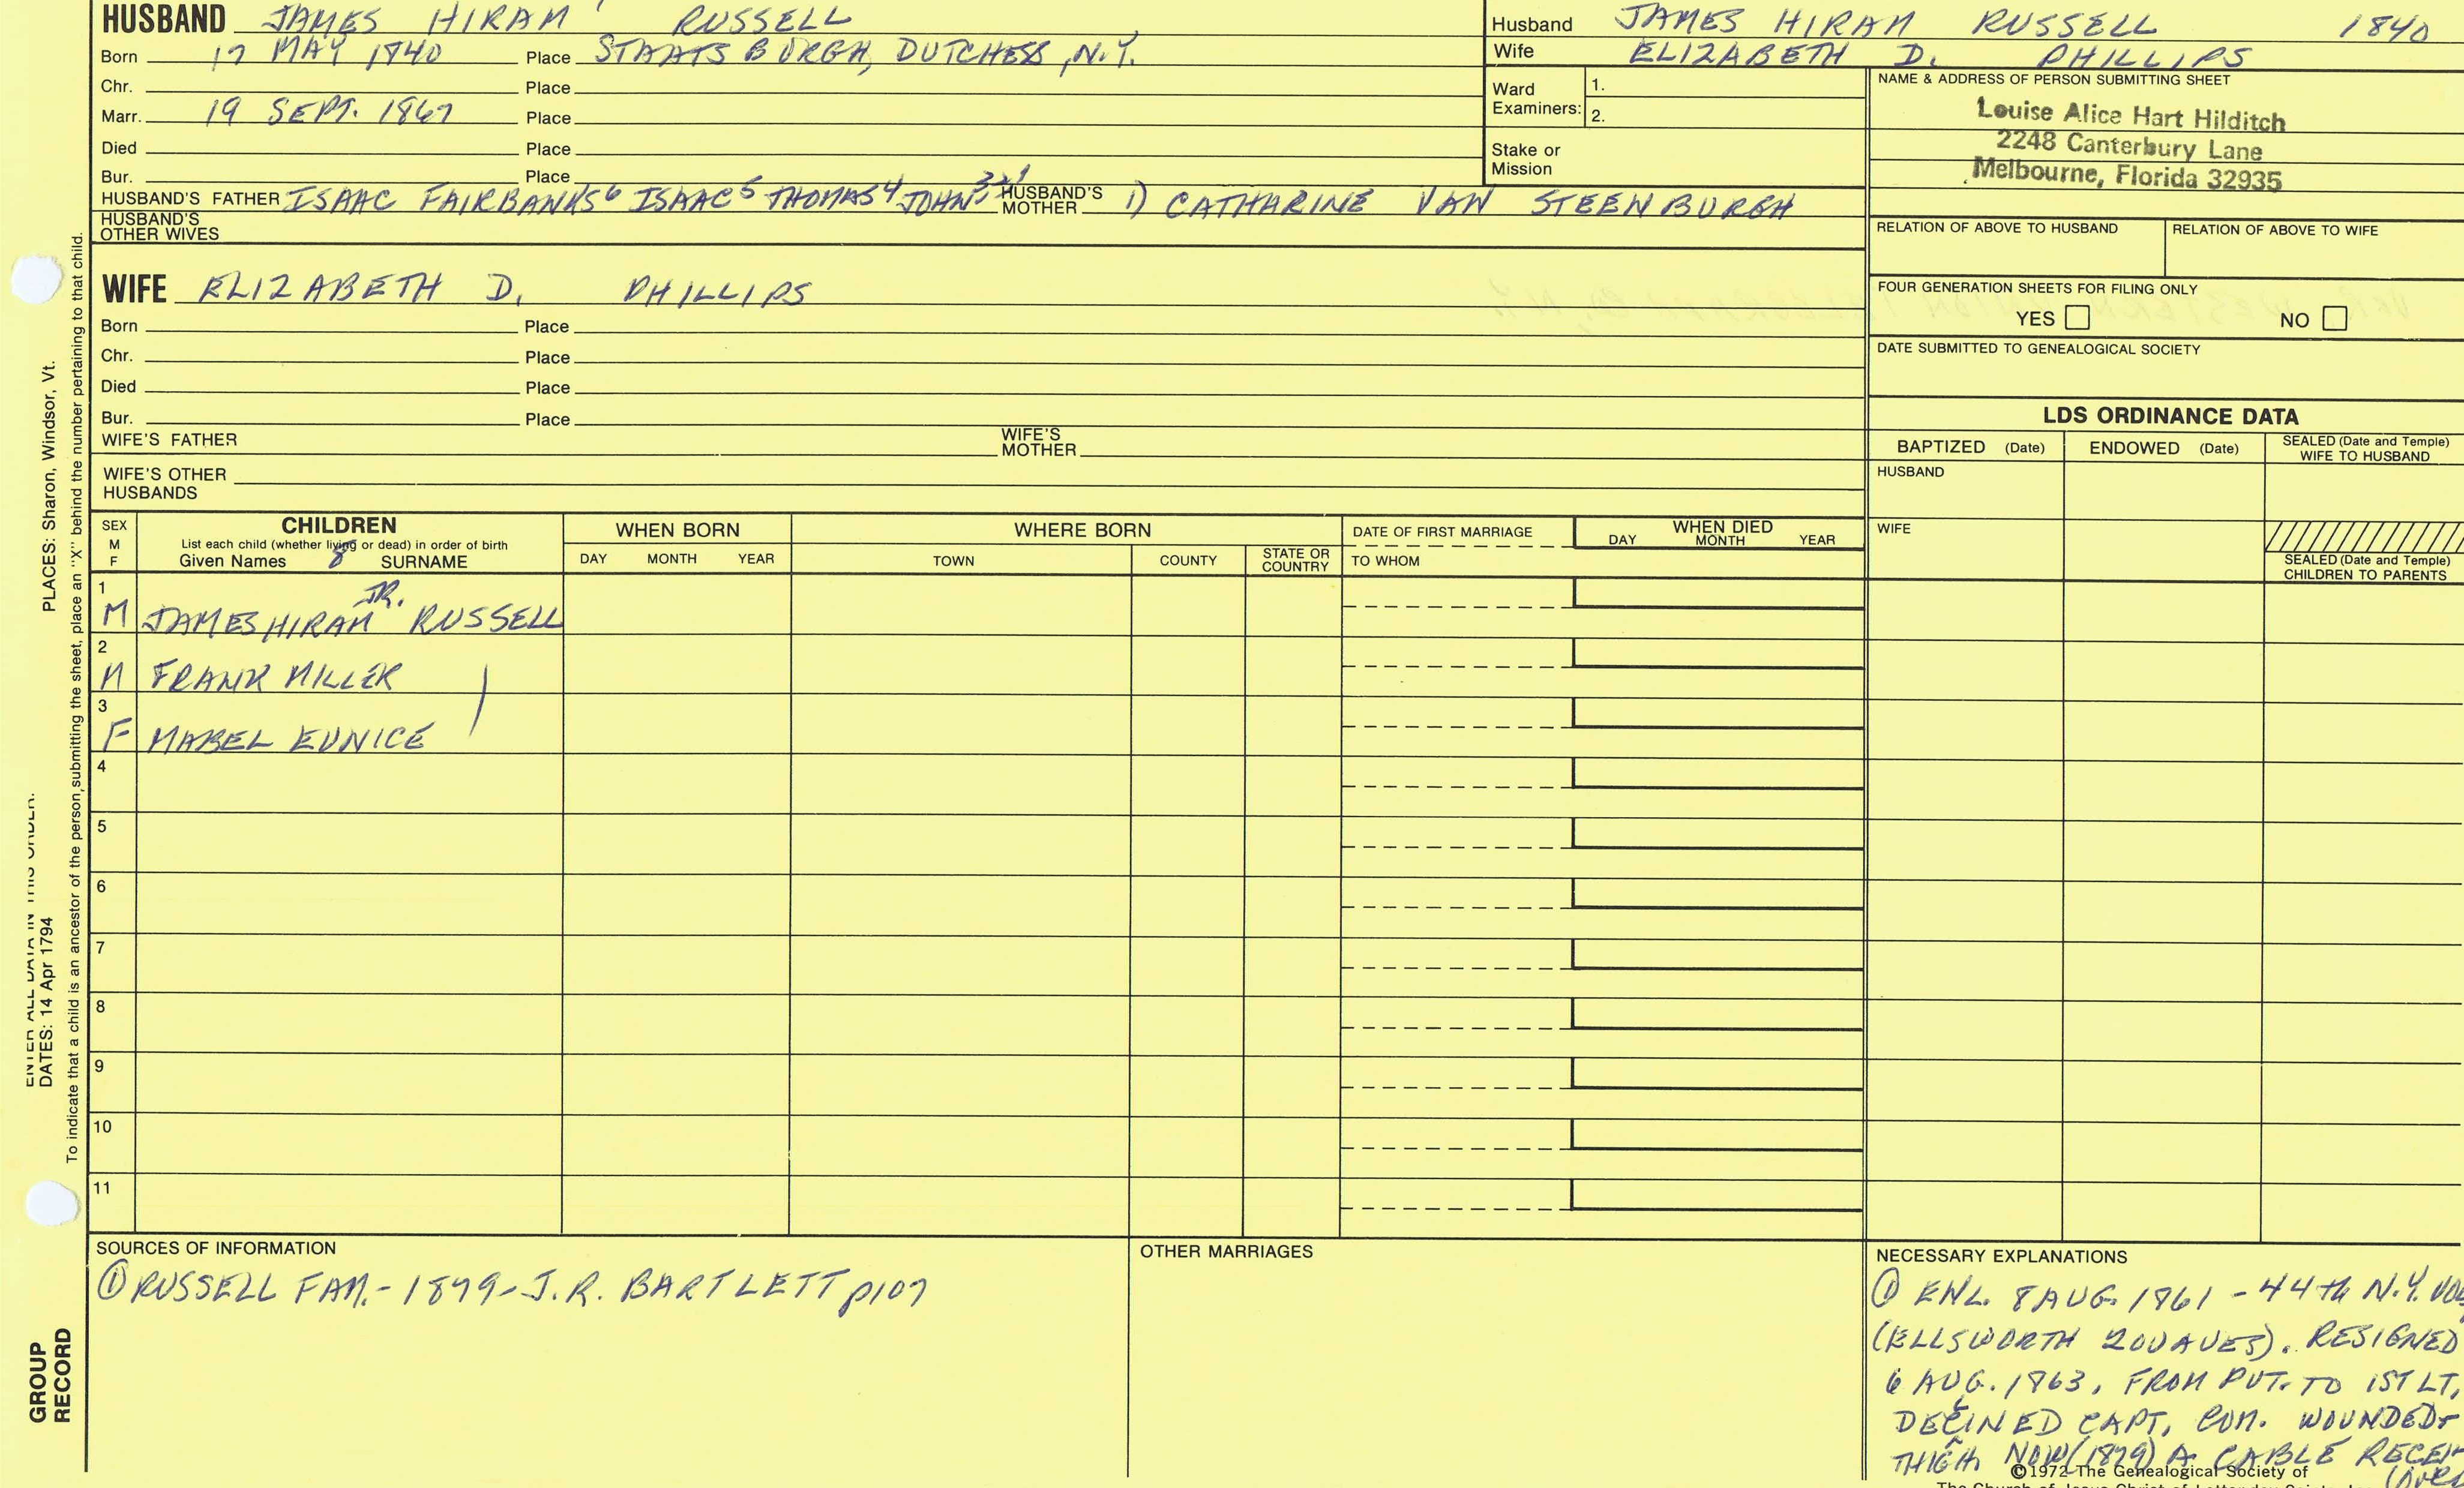 HUSBAND JAMES HIRAM RUSSELL
Born 17 MAY 1840 Place STAATSBURGH, DUTCHESS, N.Y.
Chr. Place
Marr. 19 SEPT. 1867 Place
Died Place
Bur. Place
HUSBAND'S FATHER ISAAC FAIRBANKS6 ISAAC5 THOMAS4 JOHN321 HUSBAND'S MOTHER 1) CATHARINE VAN STEENBURGH
HUSBAND'S OTHER WIVES
Husband JAMES HIRAM RUSSELL 1840
Wife ELIZABETH D. PHILLIPS
Ward Examiners: 1.
2.
Stake or Mission
NAME & ADDRESS OF PERSON SUBMITTING SHEET
Louise Alice Hart Hilditch
2248 Canterbury Lane
Melbourne, Florida 32935
RELATION OF ABOVE TO HUSBAND RELATION OF ABOVE TO WIFE
FOUR GENERATION SHEETS FOR FILING ONLY
YES NO
DATE SUBMITTED TO GENEALOGICAL SOCIETY
WIFE ELIZABETH D. PHILLIPS
Born Place
Chr. Place
Died Place
Bur. Place
WIFE'S FATHER WIFE'S MOTHER
WIFE'S OTHER HUSBANDS
LDS ORDINANCE DATA
BAPTIZED (Date) ENDOWED (Date) SEALED (Date and Temple) WIFE TO HUSBAND
HUSBAND
WIFE
SEALED (Date and Temple) CHILDREN TO PARENTS
SEX M F
CHILDREN
List each child (whether living or dead) in order of birth
Given Names 8 SURNAME
WHEN BORN
DAY MONTH YEAR
WHERE BORN
TOWN COUNTY STATE OR COUNTRY
DATE OF FIRST MARRIAGE
TO WHOM
WHEN DIED
DAY MONTH YEAR
1
M JAMES HIRAM JR. RUSSELL
2
M FRANK MILLER
3
F MABEL EUNICE
4
5
6
7
8
9
10
11
SOURCES OF INFORMATION
① RUSSELL FAM. - 1879 - J.R. BARTLETT p107
OTHER MARRIAGES
NECESSARY EXPLANATIONS
① ENL. 8 AUG. 1861 - 44th N.Y.
(ELLSWORTH ZOUAVES). RESIGNED
6 AUG. 1863, FROM PVT. TO 1ST LT,
DECLINED CAPT. COM. WOUNDED-
THIGH. NOW (1879) A CABLE
©1972 The Genealogical Society of
The Church of Jesus Christ of Latter-day Saints
PLACES: Sharon, Windsor, Vt.
ENTER ALL DATA IN THIS ORDER:
DATES: 14 Apr 1794
To indicate that a child is an ancestor of the person submitting the sheet, place an "X" behind the number pertaining to that child.
GROUP
RECORD